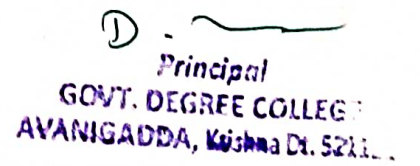 D.
Principal
GOVT. DEGREE COLLEG
AVANIGADDA, Krishna Dt. 521